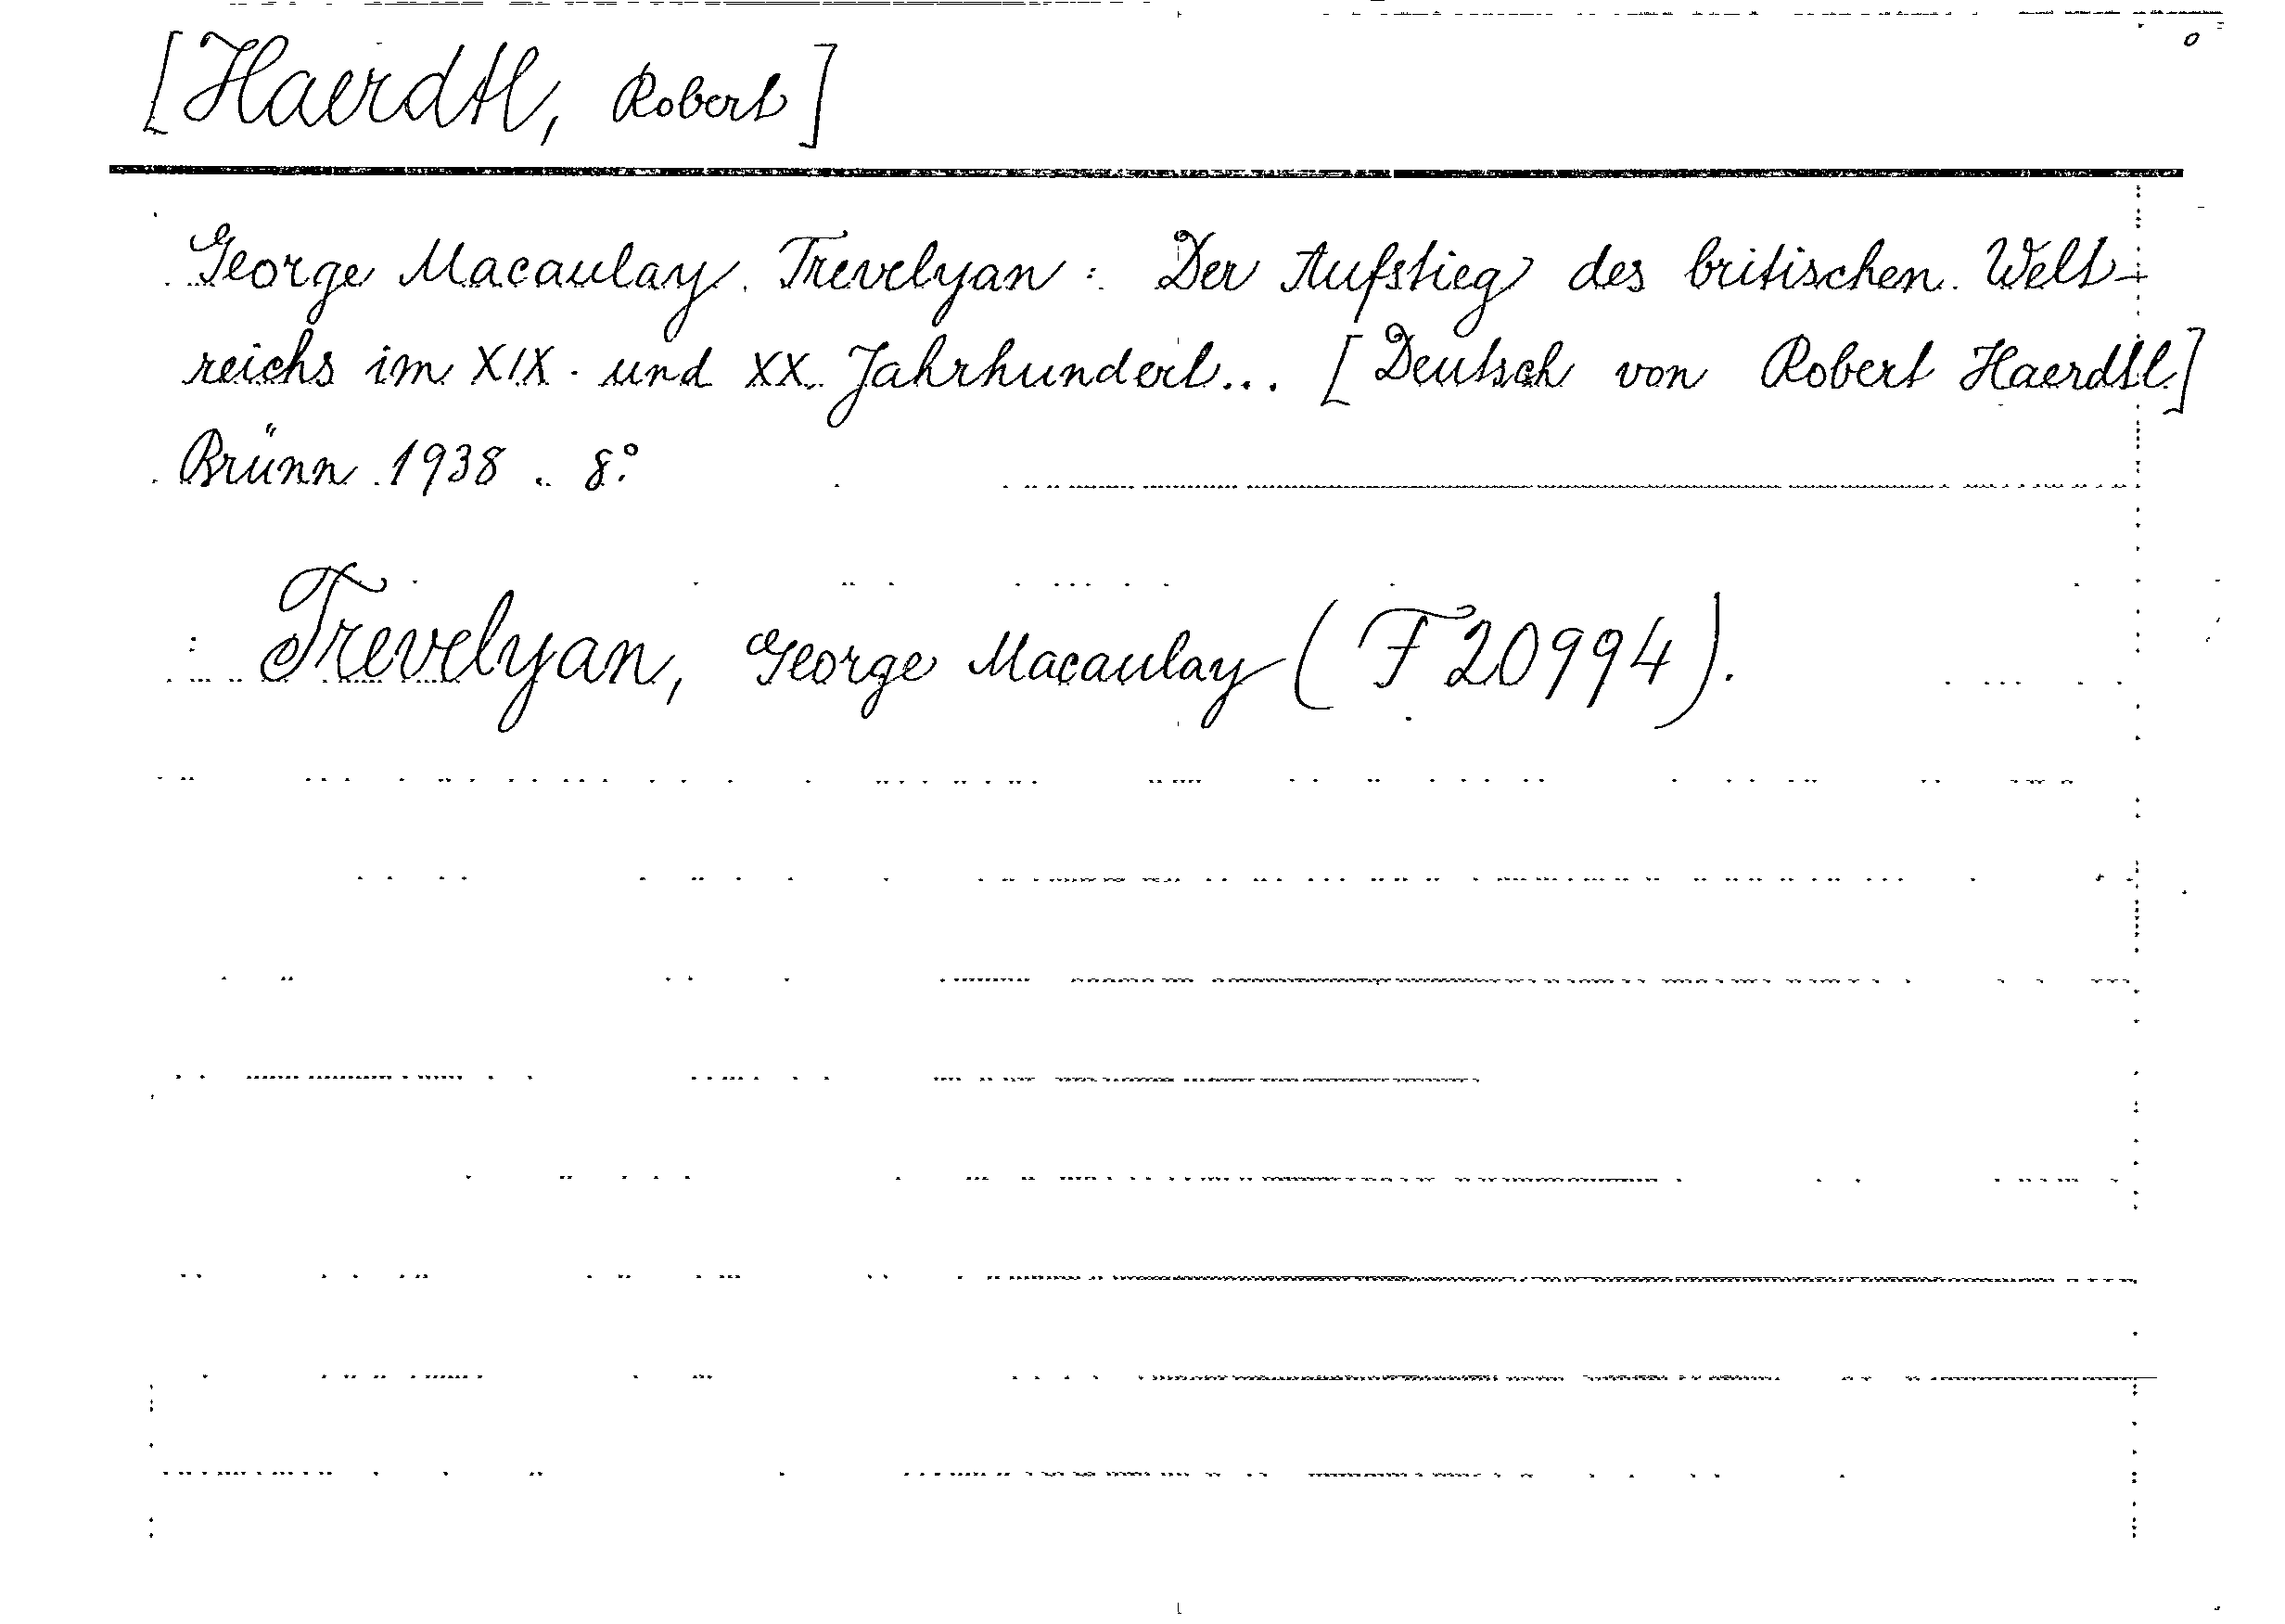 [Haerdtl, Robert]
George Macaulay Trevelyan: Der Aufstieg des britischen Welt-
reichs im XIX. und XX. Jahrhundert... [Deutsch von Robert Haerdtl.]
Brünn 1938. 8°.
Trevelyan, George Macaulay (F 20994).